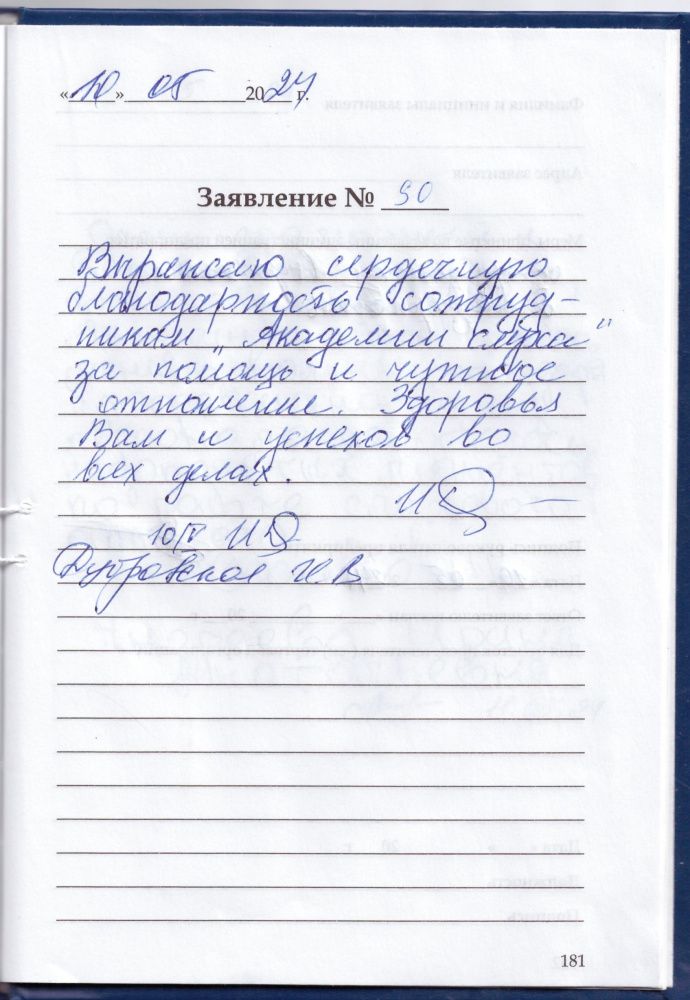 «10» 05 2024 г.
Заявление № 90
Выражаю сердечную
благодарность сотруд-
никам "Академии слуха"
за помощь и чуткое
отношение. Здоровья
Вам и успехов во
всех делах.
10/V
И.В
181